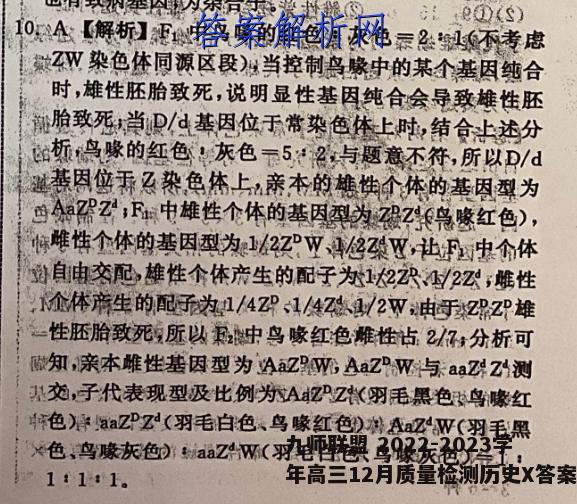 也有致病基因,为杂合子。
(2)①9
10. A 【解析】F₁中鸟喙的红色:灰色=2:1(不考虑
答案解析网
ZW染色体同源区段),当控制鸟喙中的某个基因纯合
时,雄性胚胎致死,说明显性基因纯合会导致雄性胚
胎致死;当D/d基因位于常染色体上时,结合上述分
析,鸟喙的红色:灰色=5:2,与题意不符,所以D/d
基因位于Z染色体上,亲本的雄性个体的基因型为
AaZᴰZᵈ;F₁中雄性个体的基因型为ZᴰZᵈ(鸟喙红色),
雌性个体的基因型为1/2ZᴰW、1/2ZᵈW,让F₁中个体
自由交配,雄性个体产生的配子为1/2Zᴰ、1/2Zᵈ,雌性
个体产生的配子为1/4Zᴰ、1/4Zᵈ、1/2W,由于ZᴰZᴰ雄
性胚胎致死,所以F₂中鸟喙红色雌性占2/7;分析可
知,亲本雌性基因型为AaZᴰW,AaZᴰW与aaZᵈZᵈ测
交,子代表现型及比例为AaZᴰZᵈ(羽毛黑色、鸟喙红
色):aaZᴰZᵈ(羽毛白色、鸟喙红色):AaZᵈW(羽毛黑
色、鸟喙灰色):aaZᵈW(羽毛白色、鸟喙灰色)=1:
1:1:1。
九师联盟 2022-2023学
年高三12月质量检测历史X答案